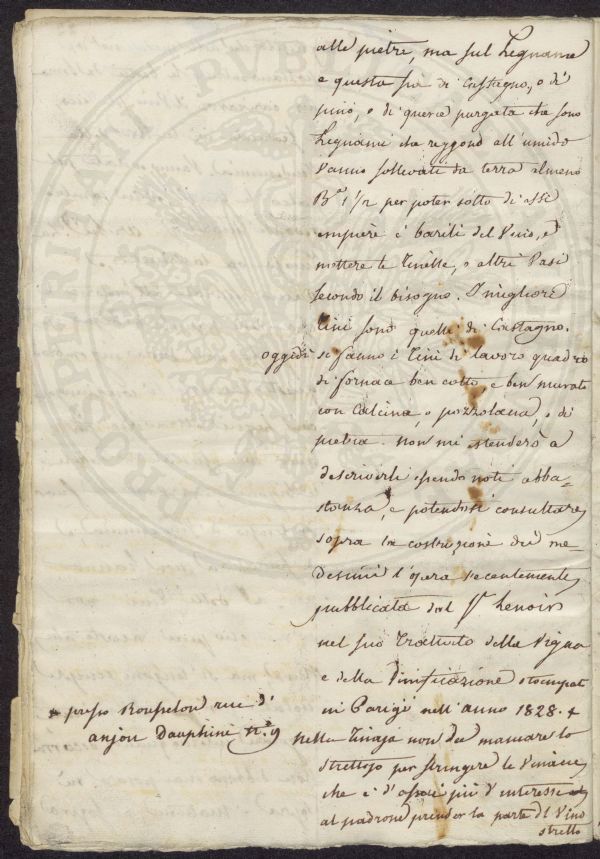 alle pietre, ma sul Legname
e questo sia di Castagno, o di
pino, o di querce purgata che sono
Legnami che reggono all'umido
Vanno sollevati da terra almeno
B.a 1 1/2 per poter sotto di essi
empiere i barili del Vino, e
mettere le Tinelle, o altri Vasi
secondo il bisogno. I migliori
tini sono quelli di Castagno.
oggidì si fanno i Tini di lavoro quadro
di fornace ben cotto, e ben murati
con Calcina, o pozzolana, o di
pietra. non mi stenderò a
descriverli essendo noti abba=
stanza, e potendosi consultare
sopra la costruzione dei me=
desimi l'opera recentemente
pubblicata dal S.r Lenoir
nel suo Trattato della Vigna
e della Vinificazione stampat
in Parigi nell'anno 1828. +
+ presso Rousselon rue d'
anjou Dauphine n.o 9
nella Tinaja non dee mancare lo
strettojo per stringere le Vinacce
che è d'assai più d'interesse
al padrone prender la parte del Vino
stretto
PROPRIETATI PUBL